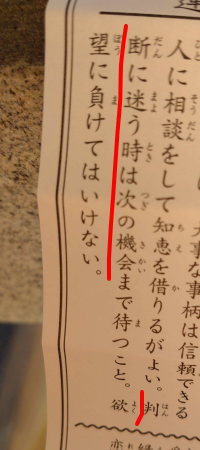 大事な事柄は信頼できる
人に相談をして知恵を借りるがよい。判
断に迷う時は次の機会まで待つこと。欲
望に負けてはいけない。